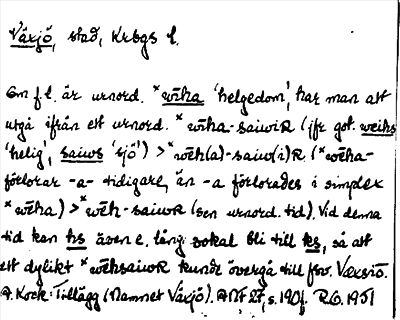 Växjö, stad, Krbgs l.
Om f.l. är urnord. *wīha 'helgedom', har man att
utgå ifrån ett urnord. *wīha-saiwiR (jfr got. weihs
'helig', saiws 'sjö') > *wēh(a)-saiw(i)R (*wēha-
förlorar -a- tidigare, än -a förlorades i simplex
*wēha) > *wēh-saiwR (sen urnord. tid). Vid denna
tid kan hs även e. lång vokal bli till ks, så att
ett dylikt *wēhsaiwR kunde övergå till fsv. Væxsiö.
A. Kock: Tillägg (Namnet Växjö). ANF 27, s. 190f. R.O. 1951